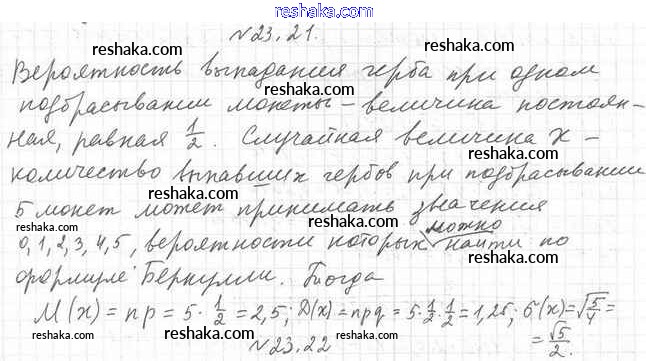 reshaka.com
№23.21.
reshaka.com
Вероятность выпадания герба при одном
reshaka.com
подбрасывании монеты – величина постоян-
ная, равная 1/2. Случайная величина X –
reshaka.com
количество выпавших гербов при подбрасывании
reshaka.com
5 монет может принимать значения
можно
0, 1, 2, 3, 4, 5, вероятности которых найти по
reshaka.com
формуле Бернулли. Тогда
M(x) = np = 5 · 1/2 = 2,5; D(x) = npq = 5 · 1/2 · 1/2 = 1,25; σ(x) = √5/4 =
= √5/2.
reshaka.com
№23.22